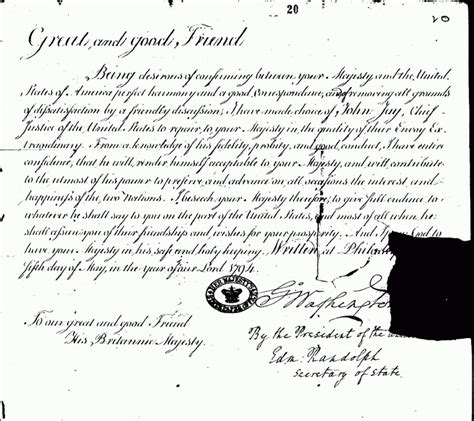 20
20
Great and good Friend
Being desirous of confirming between your Majesty and the United
States of America perfect harmony and a good correspondence, and removing all grounds
of dissatisfaction by a friendly discussion, I have made choice of John Jay, Chief
Justice of the United States to repair to your Majesty in the quality of their Envoy Ex-
traordinary. From a knowledge of his fidelity, probity, and good conduct, I have entire
confidence, that he will render himself acceptable to your Majesty, and will contribute
to the utmost of his power to preserve and advance on all occasions the interest and
happiness of the two Nations. I beseech your Majesty therefore, to give full credence to
whatever he shall say to you on the part of the United States, and most of all when he
shall assure you of their friendship and wishes for your prosperity. And I pray God to
have your Majesty in his safe and holy keeping. Written at
fifth day of May, in the year of our Lord 1794.
G. Washington
To our great and good Friend
His Britannic Majesty.
By the President of the
Edm: Randolph
Secretary of State.